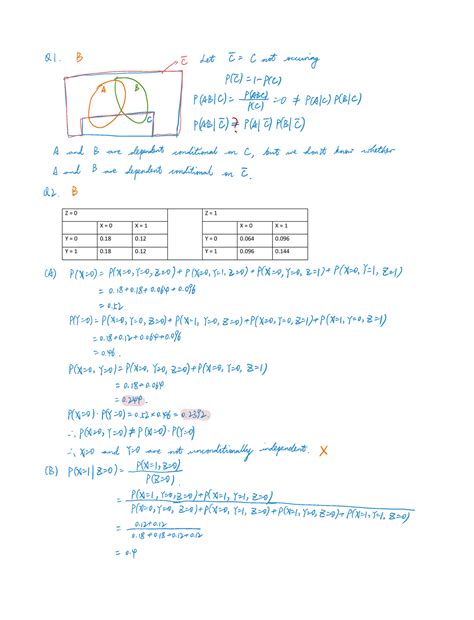 Q1. B
C̅ Let C̅ = C not occuring
A B C
P(C̅) = 1 - P(C)
P(AB|C) = P(ABC)/P(C) = 0 ≠ P(A|C) P(B|C)
P(AB|C̅) ≠? P(A|C̅) P(B|C̅)
A and B are dependent conditional on C, but we don't know whether
A and B are dependent conditional on C̅.
Q2. B
Z = 0 Z = 1
X = 0 X = 1 X = 0 X = 1
Y = 0 0.18 0.12 Y = 0 0.064 0.096
Y = 1 0.18 0.12 Y = 1 0.096 0.144
(A) P(X=0) = P(X=0, Y=0, Z=0) + P(X=0, Y=1, Z=0) + P(X=0, Y=0, Z=1) + P(X=0, Y=1, Z=1)
= 0.18 + 0.18 + 0.064 + 0.096
= 0.52
P(Y=0) = P(X=0, Y=0, Z=0) + P(X=1, Y=0, Z=0) + P(X=0, Y=0, Z=1) + P(X=1, Y=0, Z=1)
= 0.18 + 0.12 + 0.064 + 0.096
= 0.46
P(X=0, Y=0) = P(X=0, Y=0, Z=0) + P(X=0, Y=0, Z=1)
= 0.18 + 0.064
= 0.244
P(X=0) · P(Y=0) = 0.52 × 0.46 = 0.2392
∴ P(X=0, Y=0) ≠ P(X=0) · P(Y=0)
∴ X=0 and Y=0 are not unconditionally independent. X
(B) P(X=1 | Z=0) = P(X=1, Z=0) / P(Z=0)
= P(X=1, Y=0, Z=0) + P(X=1, Y=1, Z=0)
P(X=0, Y=0, Z=0) + P(X=0, Y=1, Z=0) + P(X=1, Y=0, Z=0) + P(X=1, Y=1, Z=0)
= 0.12 + 0.12
0.18 + 0.18 + 0.12 + 0.12
= 0.4